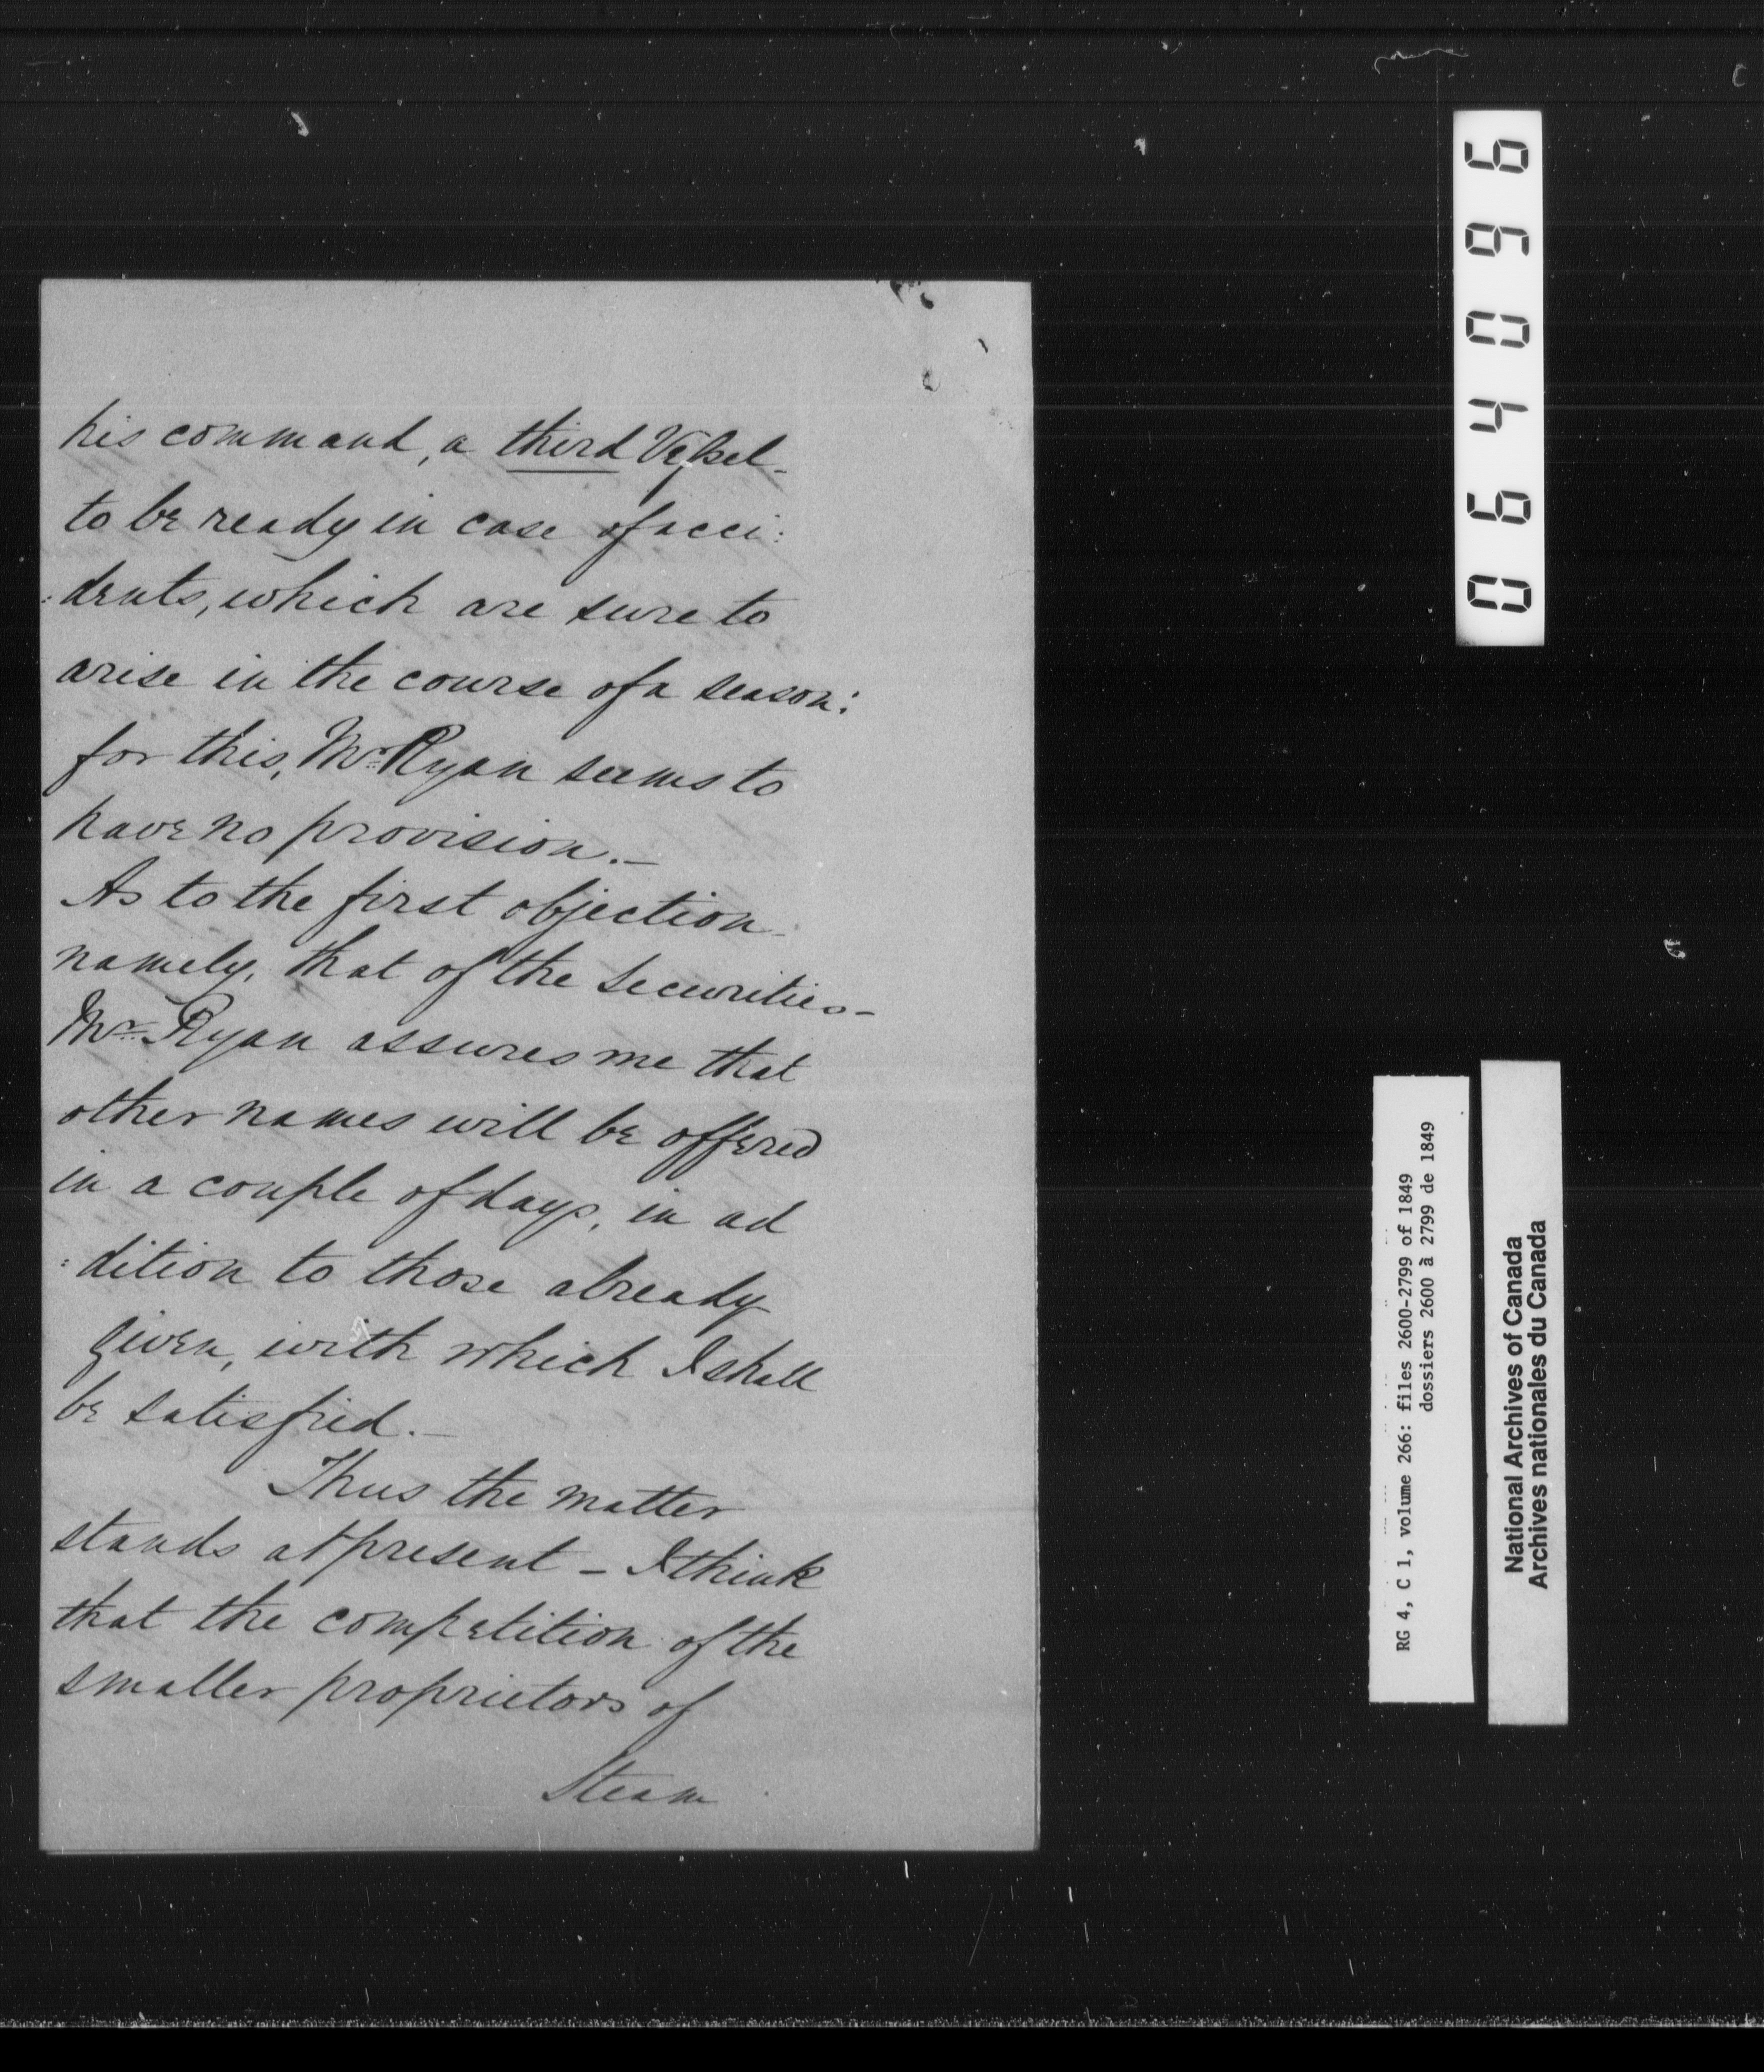 his command, a third Vessel-
to be ready in case of acci:
:dents, which are sure to
arise in the course of a season:
for this, Mr. Ryan seems to
have no provision.-
As to the first objection-
namely, that of the securities-
Mr. Ryan assures me that
other names will be offered
in a couple of days, in ad
:dition to those already
given, with which I shall
be satisfied.-
Thus the matter
stands at present - I think
that the competition of the
smaller proprietors of
Steam
064096
RG 4, C 1, volume 266: files 2600-2799 of 1849
dossiers 2600 à 2799 de 1849
National Archives of Canada
Archives nationales du Canada